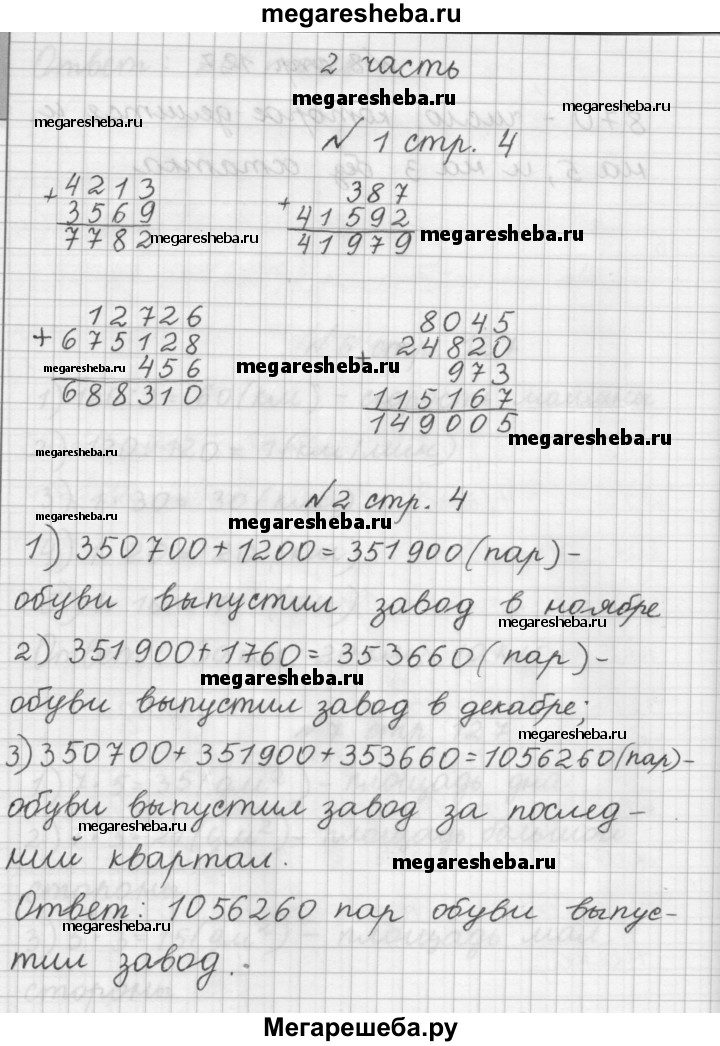 megaresheba.ru
2 часть
megaresheba.ru
megaresheba.ru
megaresheba.ru
№ 1 стр. 4
+ 4213
3569
7782
megaresheba.ru
+ 387
41592
41979
megaresheba.ru
12726
+ 675128
456
688310
megaresheba.ru
megaresheba.ru
8045
+ 24820
973
115167
149005
megaresheba.ru
megaresheba.ru
№2 стр. 4
megaresheba.ru
megaresheba.ru
1) 350700+1200=351900(пар)-
обуви выпустил завод в ноябре
megaresheba.ru
2) 351900+1760=353660(пар)-
megaresheba.ru
обуви выпустил завод в декабре;
megaresheba.ru
3)350700+351900+353660=1056260(пар)-
обуви выпустил завод за послед-
megaresheba.ru
ний квартал.
megaresheba.ru
Ответ: 1056260 пар обуви выпус-
megaresheba.ru
тил завод.
Мегарешеба.ру